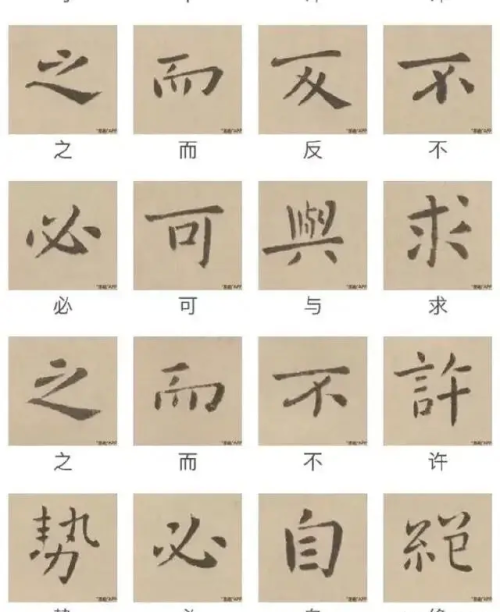 之 而 反 不
之 而 反 不
必 可 與 求
必 可 与 求
之 而 不 許
之 而 不 许
勢 必 自 絕